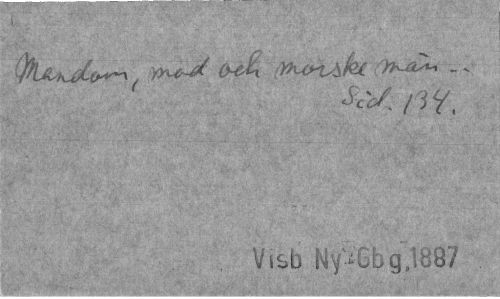 Mandom, mod och morske män --
Sid. 134.
Visb Ny-Gbg, 1887